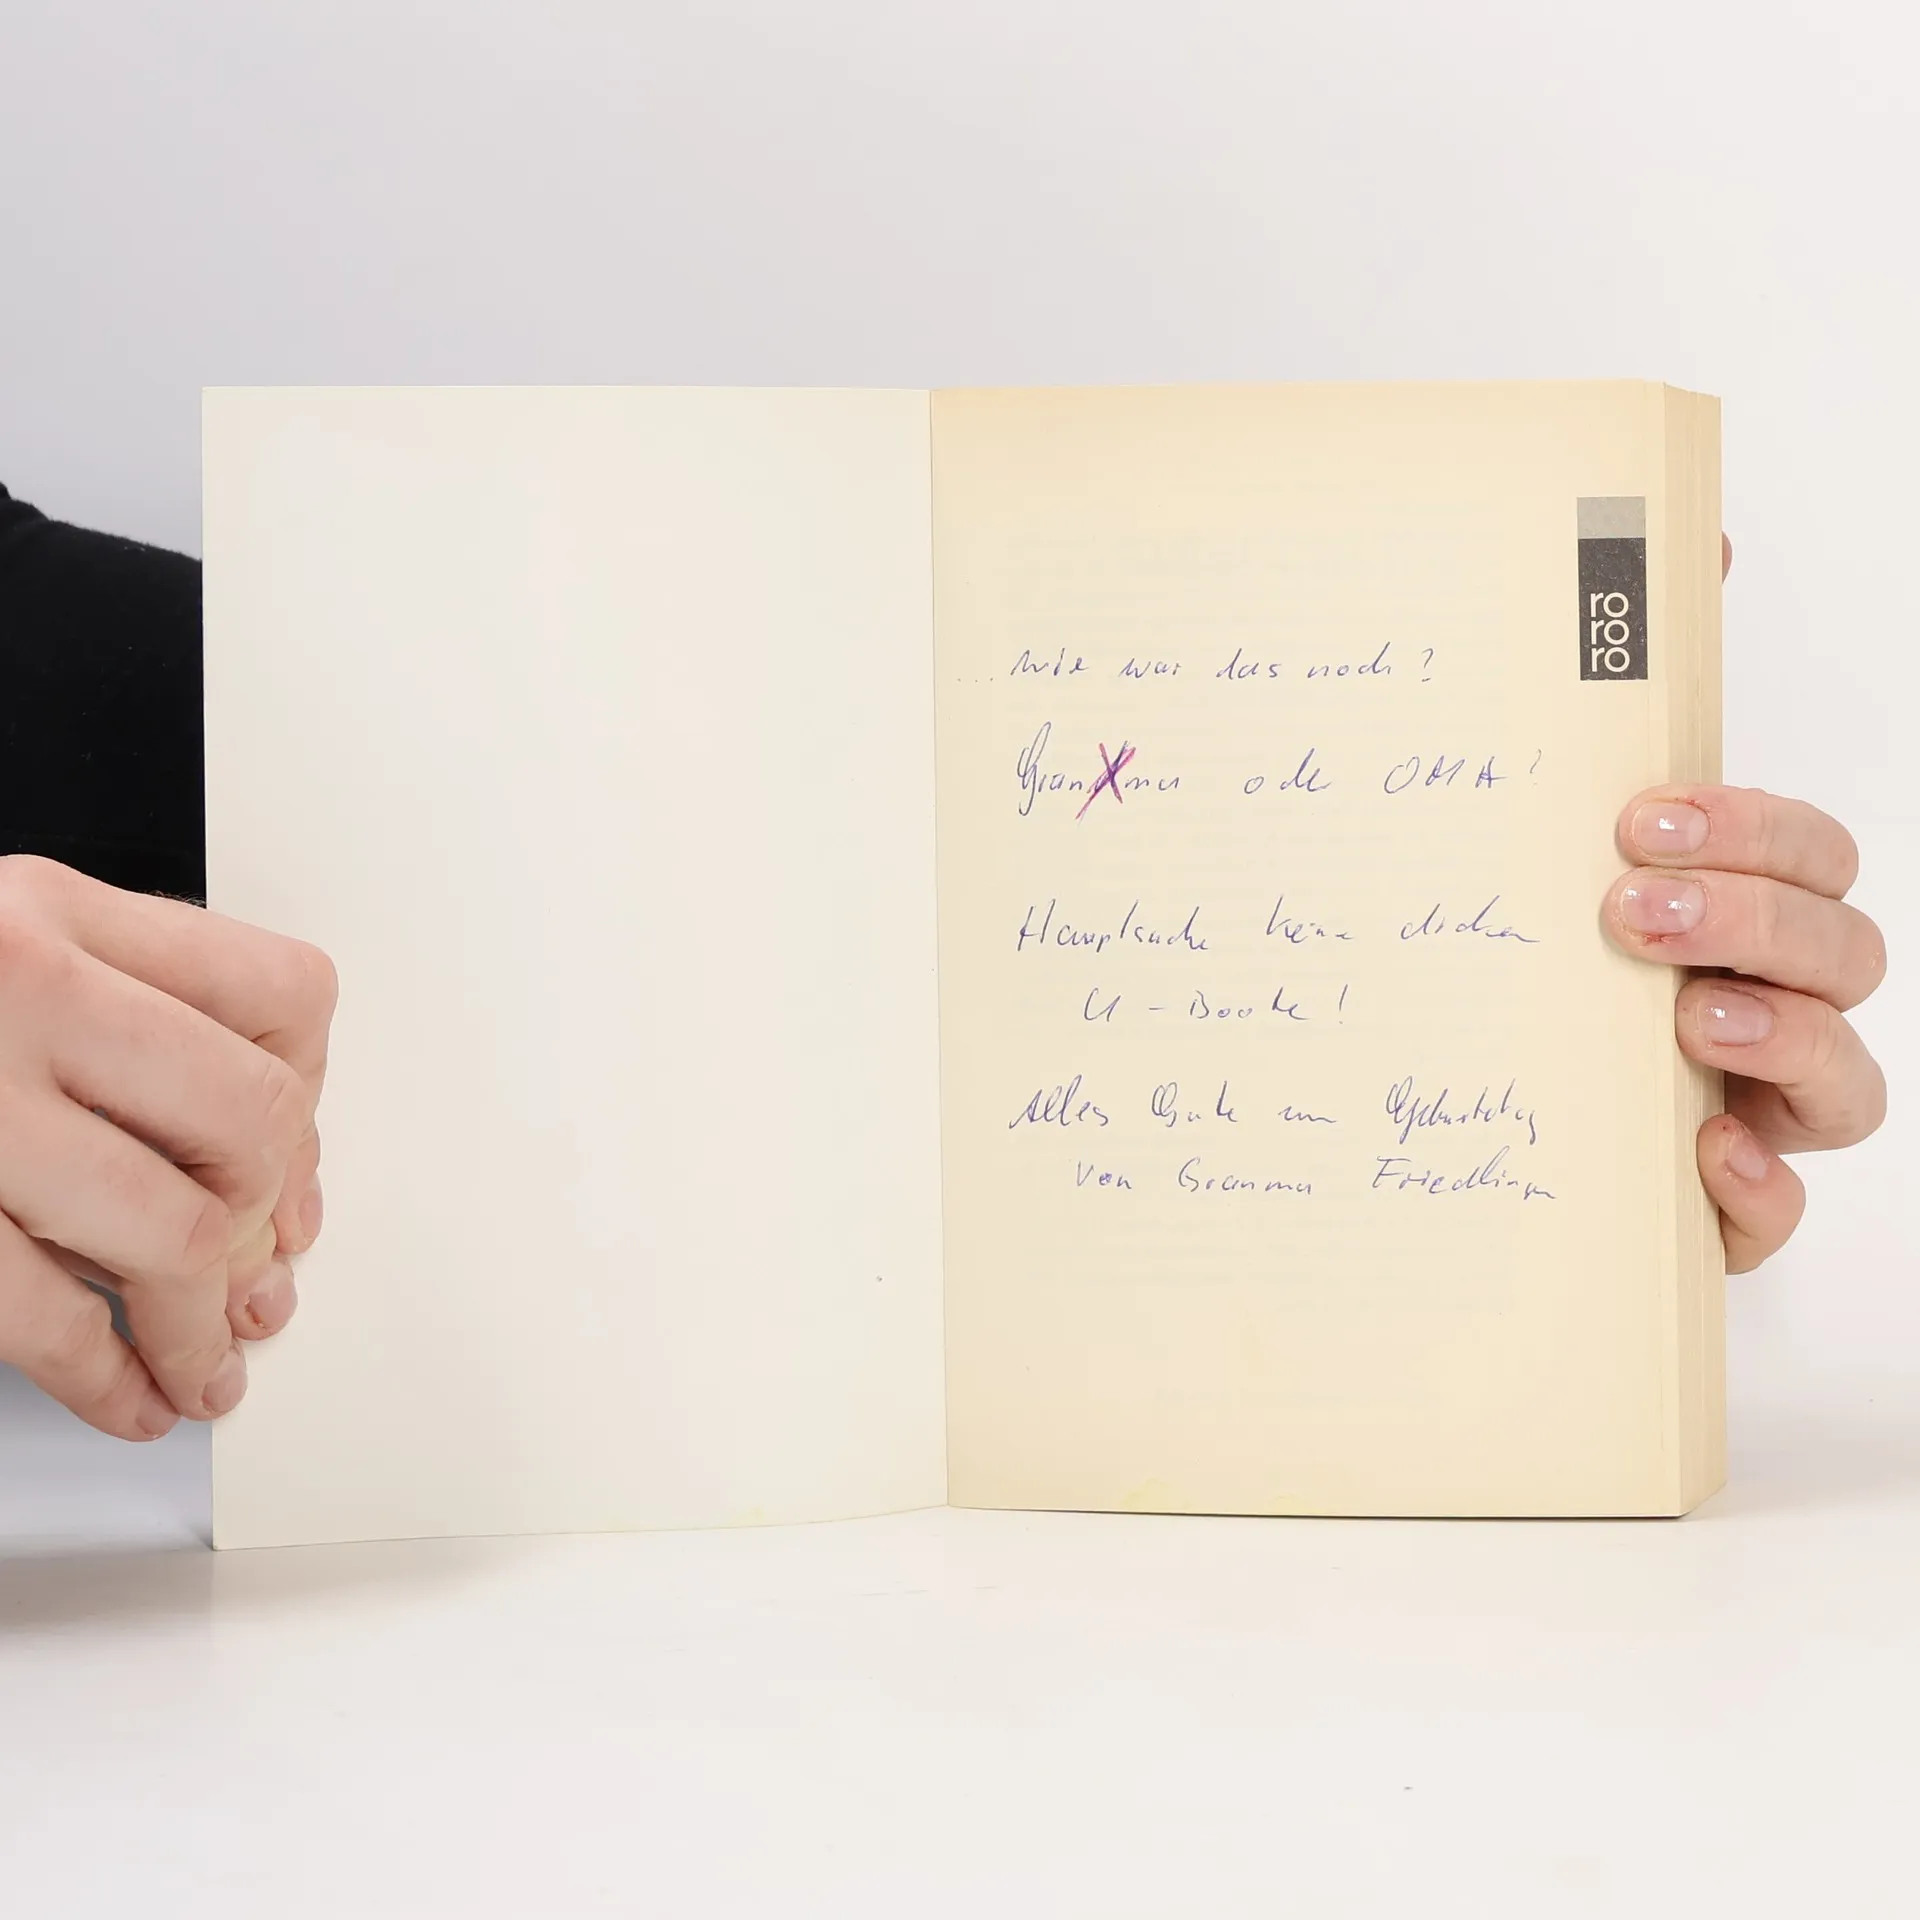 ... wie war das noch?
ro
ro
ro
Granma oder OMA?
Hauptsache keine dicken
U-Boote!
Alles Gute zum Geburtstag
von Granma